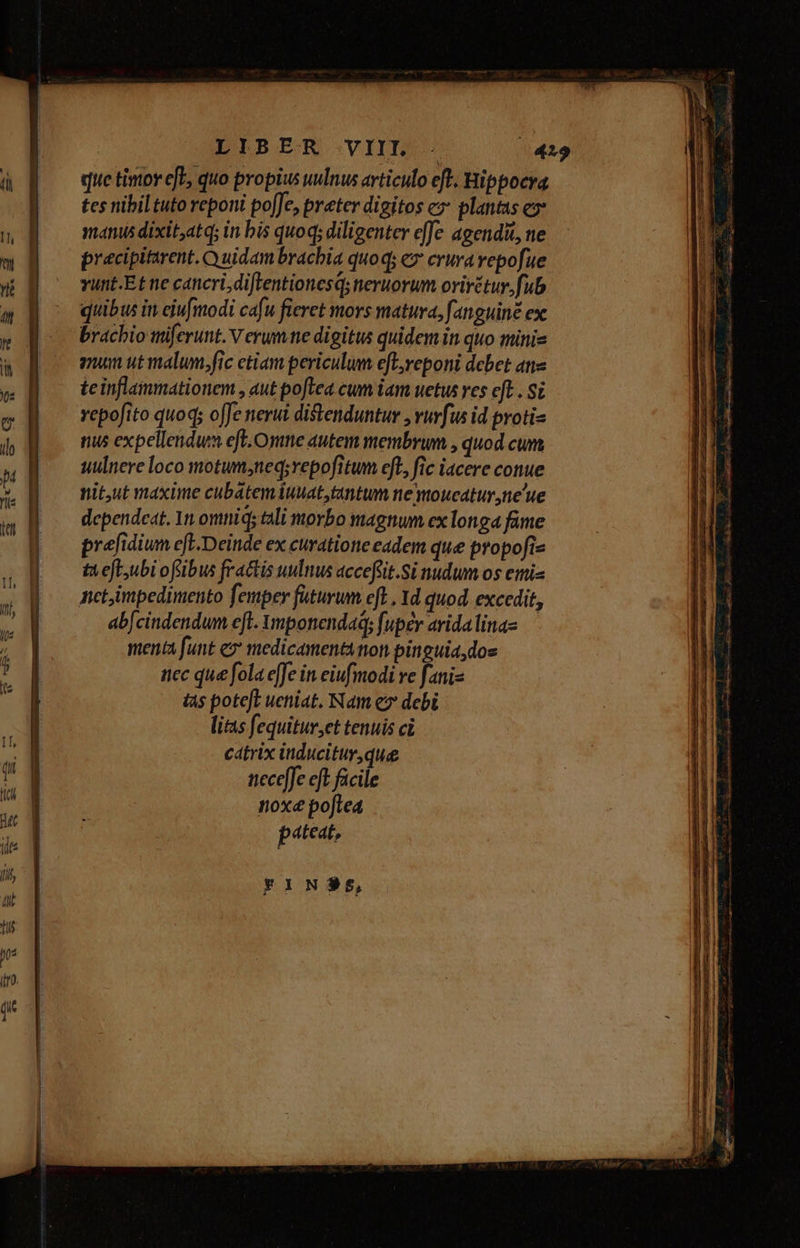 LIBER VIII. 429
que timor eſt, quo propius uulnus articulo eſt. Hippocra
tes nihil tuto reponi poſſe, præter digitos & plantas &
manus dixit,atq; in his quoq; diligenter eſſe agendū, ne
præcipitarent. Quidam brachia quoq; & crura repoſue
runt.Et ne cancri,diſtentionesq; neruorum orirētur,ſub
quibus in eiuſmodi caſu fieret mors matura, ſanguinē ex
brachio miſerunt. Verum ne digitus quidem in quo mini=
mum ut malum,ſic etiam periculum eſt,reponi debet an=
te inflammationem , aut poſtea cum iam uetus res eſt . Si
repoſito quoq; oſſe nerui diſtenduntur , rurſus id proti=
nus expellendum eſt.Omne autem membrum , quod cum
uulnere loco motum,neq;repoſitum eſt, ſic iacere conue
nit,ut maxime cubātem iuuat,tantum ne moueatur,ne'ue
dependeat. In omniq; tali morbo magnum ex longa fame
præſidium eſt.Deinde ex curatione eadem quæ propoſi=
ta eſt,ubi oſsibus fractis uulnus acceſsit.Si nudum os emi=
net,impedimento ſemper futurum eſt . Id quod excedit,
abſcindendum eſt. Imponendaq; ſuper arida lina=
menta ſunt & medicamenta non pinguia,do=
nec quæ ſola eſſe in eiuſmodi re ſani=
tas poteſt ueniat. Nam & debi
litas ſequitur,et tenuis ci
catrix inducitur,quæ
neceſſe eſt facile
noxæ poſtea
pateat,
FINIS,